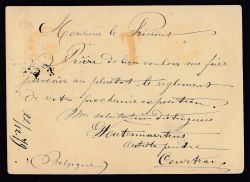 Monsieur le Président
Prière de bien vouloir me faire
parvenir au plus tôt le règlement
de votre prochaine exposition.
Mes salutations distinguées
artiste peintre
Courtrai
(Belgique)